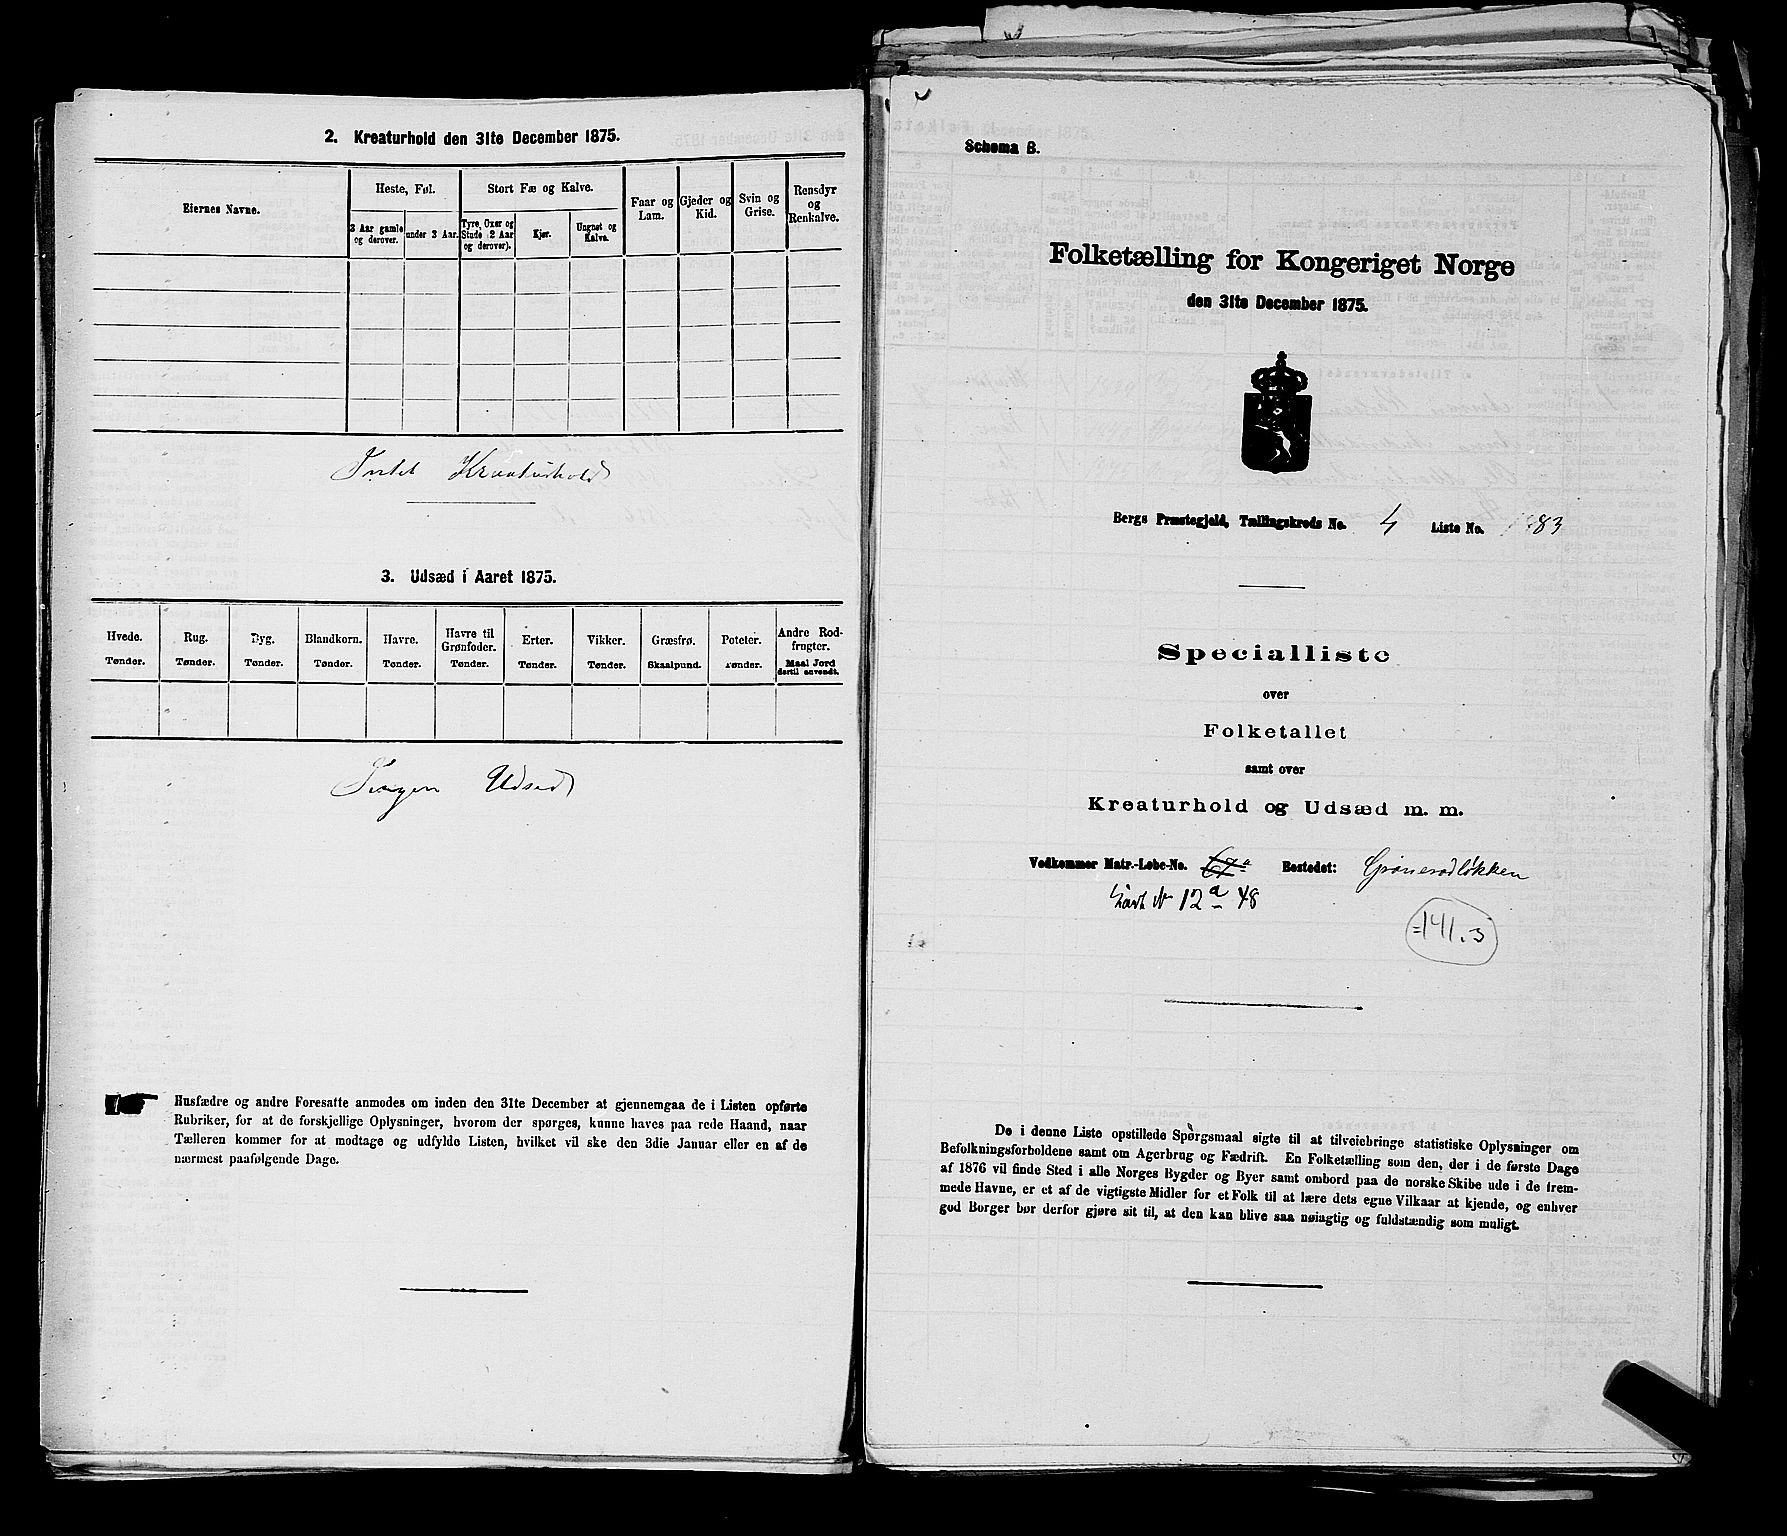 2. Kreaturhold den 31te December 1875.
Eiernes Navne.
Heste, Føl.
Stort Fæ og Kalve.
Faar og Lam.
Gjeder og Kid.
Svin og Grise.
Rensdyr og Renkalve.
3 Aar gamle og derover.
under 3 Aar.
Tyre, Oxer og Stude (2 Aar og derover).
Kjør.
Ungnøt og Kalve.
Intet Kreaturhold
3. Udsæd i Aaret 1875.
Hvede.
Rug.
Byg.
Blandkorn.
Havre.
Havre til Grønfoder.
Erter.
Vikker.
Græsfrø.
Poteter.
Andre Rodfrugter.
Tønder.
Tønder.
Tønder.
Tønder.
Tønder.
Tønder.
Tønder.
Tønder.
Skaalpund.
Tønder.
Maal Jord dertil anvendt.
Ingen Udsæd
Husfædre og andre Foresatte anmodes om inden den 31te December at gjennemgaa de i Listen opførte
Rubriker, for at de forskjellige Oplysninger, hvorom der spørges, kunne haves paa rede Haand, naar
Tælleren kommer for at modtage og udfylde Listen, hvilket vil ske den 3die Januar eller en af de
nærmest paafølgende Dage.
Schema B.
Folketælling for Kongeriget Norge
den 31te December 1875.
Bergs Præstegjeld, Tællingskreds No. 4 Liste No. 83
Specialliste
over
Folketallet
samt over
Kreaturhold og Udsæd m. m.
Vedkommer Matr.-Løbe-No. 67a Bostedet: Grönerødløkken
12a 48
=141.3
De i denne Liste opstillede Spørgsmaal sigte til at tilveiebringe statistiske Oplysninger om
Befolkningsforholdene samt om Agerbrug og Fædrift. En Folketælling som den, der i de første Dage
af 1876 vil finde Sted i alle Norges Bygder og Byer samt ombord paa de norske Skibe ude i de frem-
mede Havne, er et af de vigtigste Midler for et Folk til at lære dets egne Vilkaar at kjende, og enhver
god Borger bør derfor gjøre sit til, at den kan blive saa nøiagtig og fuldstændig som muligt.